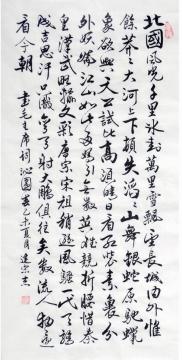 北國風光千里冰封萬里雪飄望長城内外惟
餘莽莽大河上下頓失滔滔山舞銀蛇原馳蠟
象欲與天公試比高須晴日看紅裝素裹分
外妖嬈江山如此多嬌引無數英雄競折腰惜秦
皇漢武略輸文彩唐宗宋祖稍遜風騷一代天驕
成吉思汗只識彎弓射大鵰俱往矣數風流人物還
看今朝 書毛主席詞沁園春 乙未夏月